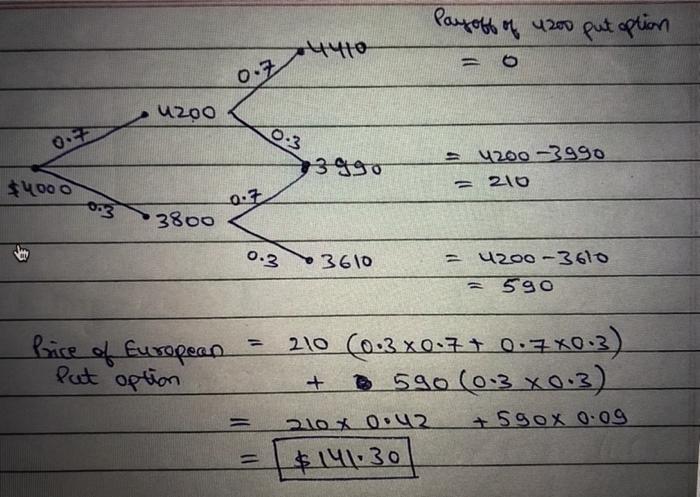 Payoff of 4200 put option
4410
= 0
0.7
4200
0.7
0.3
3990
= 4200-3990
= 210
$4000
0.7
0.3
3800
0.3
3610
= 4200-3610
= 590
Price of European = 210 (0.3×0.7+ 0.7×0.3)
Put option + 590 (0.3 × 0.3)
= 210× 0.42 +590× 0.09
= $141.30